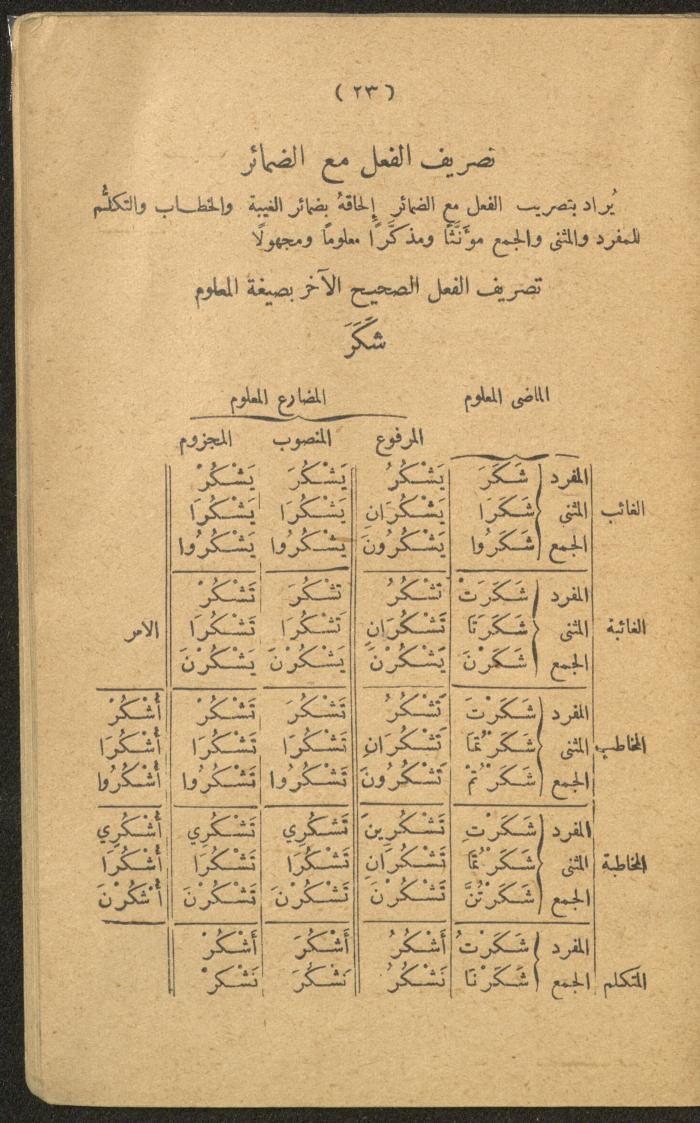 ( ٢٣ )
تصريف الفعل مع الضمائر
يُراد بتصريف الفعل مع الضمائر إلحاقهُ بضمائر الغيبة والخطاب والتكلُّم
للمفرد والمثنى والجمع مؤَنَّثًا ومذكَّرًا معلومًا ومجهولًا
تصريف الفعل الصحيح الآخر بصيغة المعلوم
شَكَرَ
الماضى المعلوم المضارع المعلوم
المرفوع المنصوب المجزوم
المفرد شَكَرَ يَشْكُرُ يَشْكُرَ يَشْكُرْ
الغائب المثنى شَكَرَا يَشْكُرَانِ يَشْكُرَا يَشْكُرَا
الجمع شَكَرُوا يَشْكُرُونَ يَشْكُرُوا يَشْكُرُوا
المفرد شَكَرَتْ تَشْكُرُ تَشْكُرَ تَشْكُرْ
الغائبة المثنى شَكَرَتَا تَشْكُرَانِ تَشْكُرَا تَشْكُرَا الأمر
الجمع شَكَرْنَ يَشْكُرْنَ يَشْكُرْنَ يَشْكُرْنَ
المفرد شَكَرْتَ تَشْكُرُ تَشْكُرَ تَشْكُرْ أُشْكُرْ
المخاطب المثنى شَكَرْتُمَا تَشْكُرَانِ تَشْكُرَا تَشْكُرَا أُشْكُرَا
الجمع شَكَرْتُمْ تَشْكُرُونَ تَشْكُرُوا تَشْكُرُوا أُشْكُرُوا
المفرد شَكَرْتِ تَشْكُرِينَ تَشْكُرِي تَشْكُرِي أُشْكُرِي
المخاطبة المثنى شَكَرْتُمَا تَشْكُرَانِ تَشْكُرَا تَشْكُرَا أُشْكُرَا
الجمع شَكَرْتُنَّ تَشْكُرْنَ تَشْكُرْنَ تَشْكُرْنَ أُشْكُرْنَ
المفرد شَكَرْتُ أَشْكُرُ أَشْكُرَ أَشْكُرْ
المتكلم الجمع شَكَرْنَا نَشْكُرُ نَشْكُرَ نَشْكُرْ